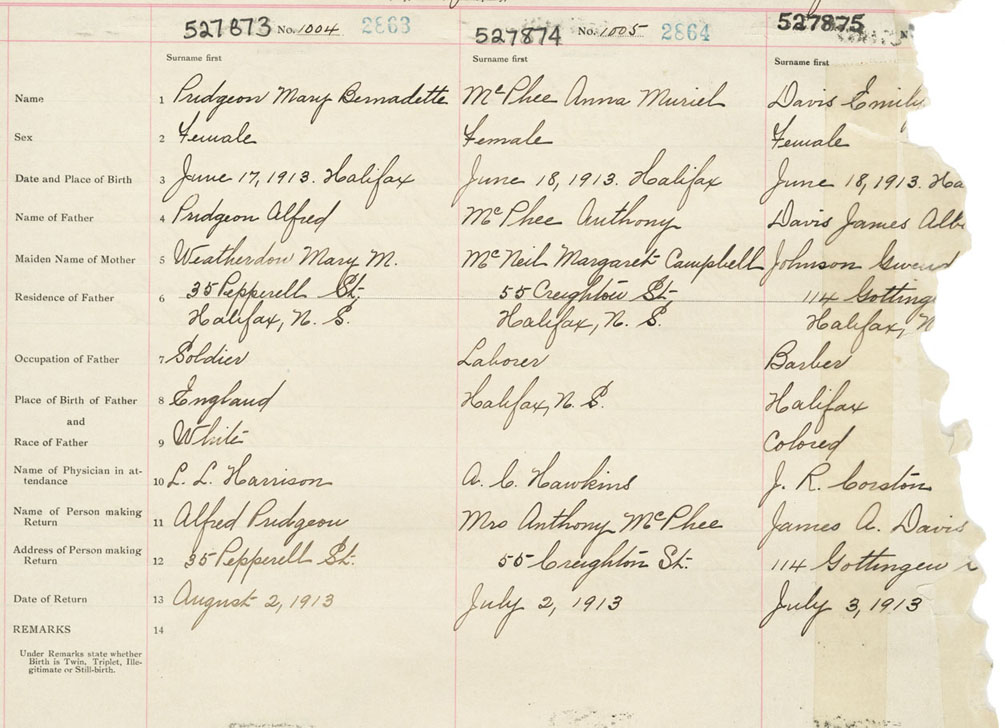 527873 No. 1004 2863 527874 No. 1005 2864 527875 N
Surname first Surname first Surname first
Name 1 Pridgeon Mary Bernadette McPhee Anna Muriel Davis Emily
Sex 2 Female Female Female
Date and Place of Birth 3 June 17, 1913. Halifax June 18, 1913. Halifax June 18, 1913. Ha
Name of Father 4 Pridgeon Alfred McPhee Anthony Davis James Alb
Maiden Name of Mother 5 Weatherdon Mary M. McNeil Margaret Campbell Johnson Gwend
Residence of Father 6 35 Pepperell St. 55 Creighton St. 114 Gotting
Halifax, N. S. Halifax, N. S. Halifax, N
Occupation of Father 7 Soldier Laborer Barber
Place of Birth of Father 8 England Halifax, N. S. Halifax
and
Race of Father 9 White Colored
Name of Physician in at-
tendance 10 L. L. Harrison A. C. Hawkins J. R. Corston
Name of Person making
Return 11 Alfred Pridgeon Mrs Anthony McPhee James A. Davis
Address of Person making
Return 12 35 Pepperell St. 55 Creighton St. 114 Gottingen
Date of Return 13 August 2, 1913 July 2, 1913 July 3, 1913
REMARKS 14
Under Remarks state whether
Birth is Twin, Triplet, Ille-
gitimate or Still-birth.